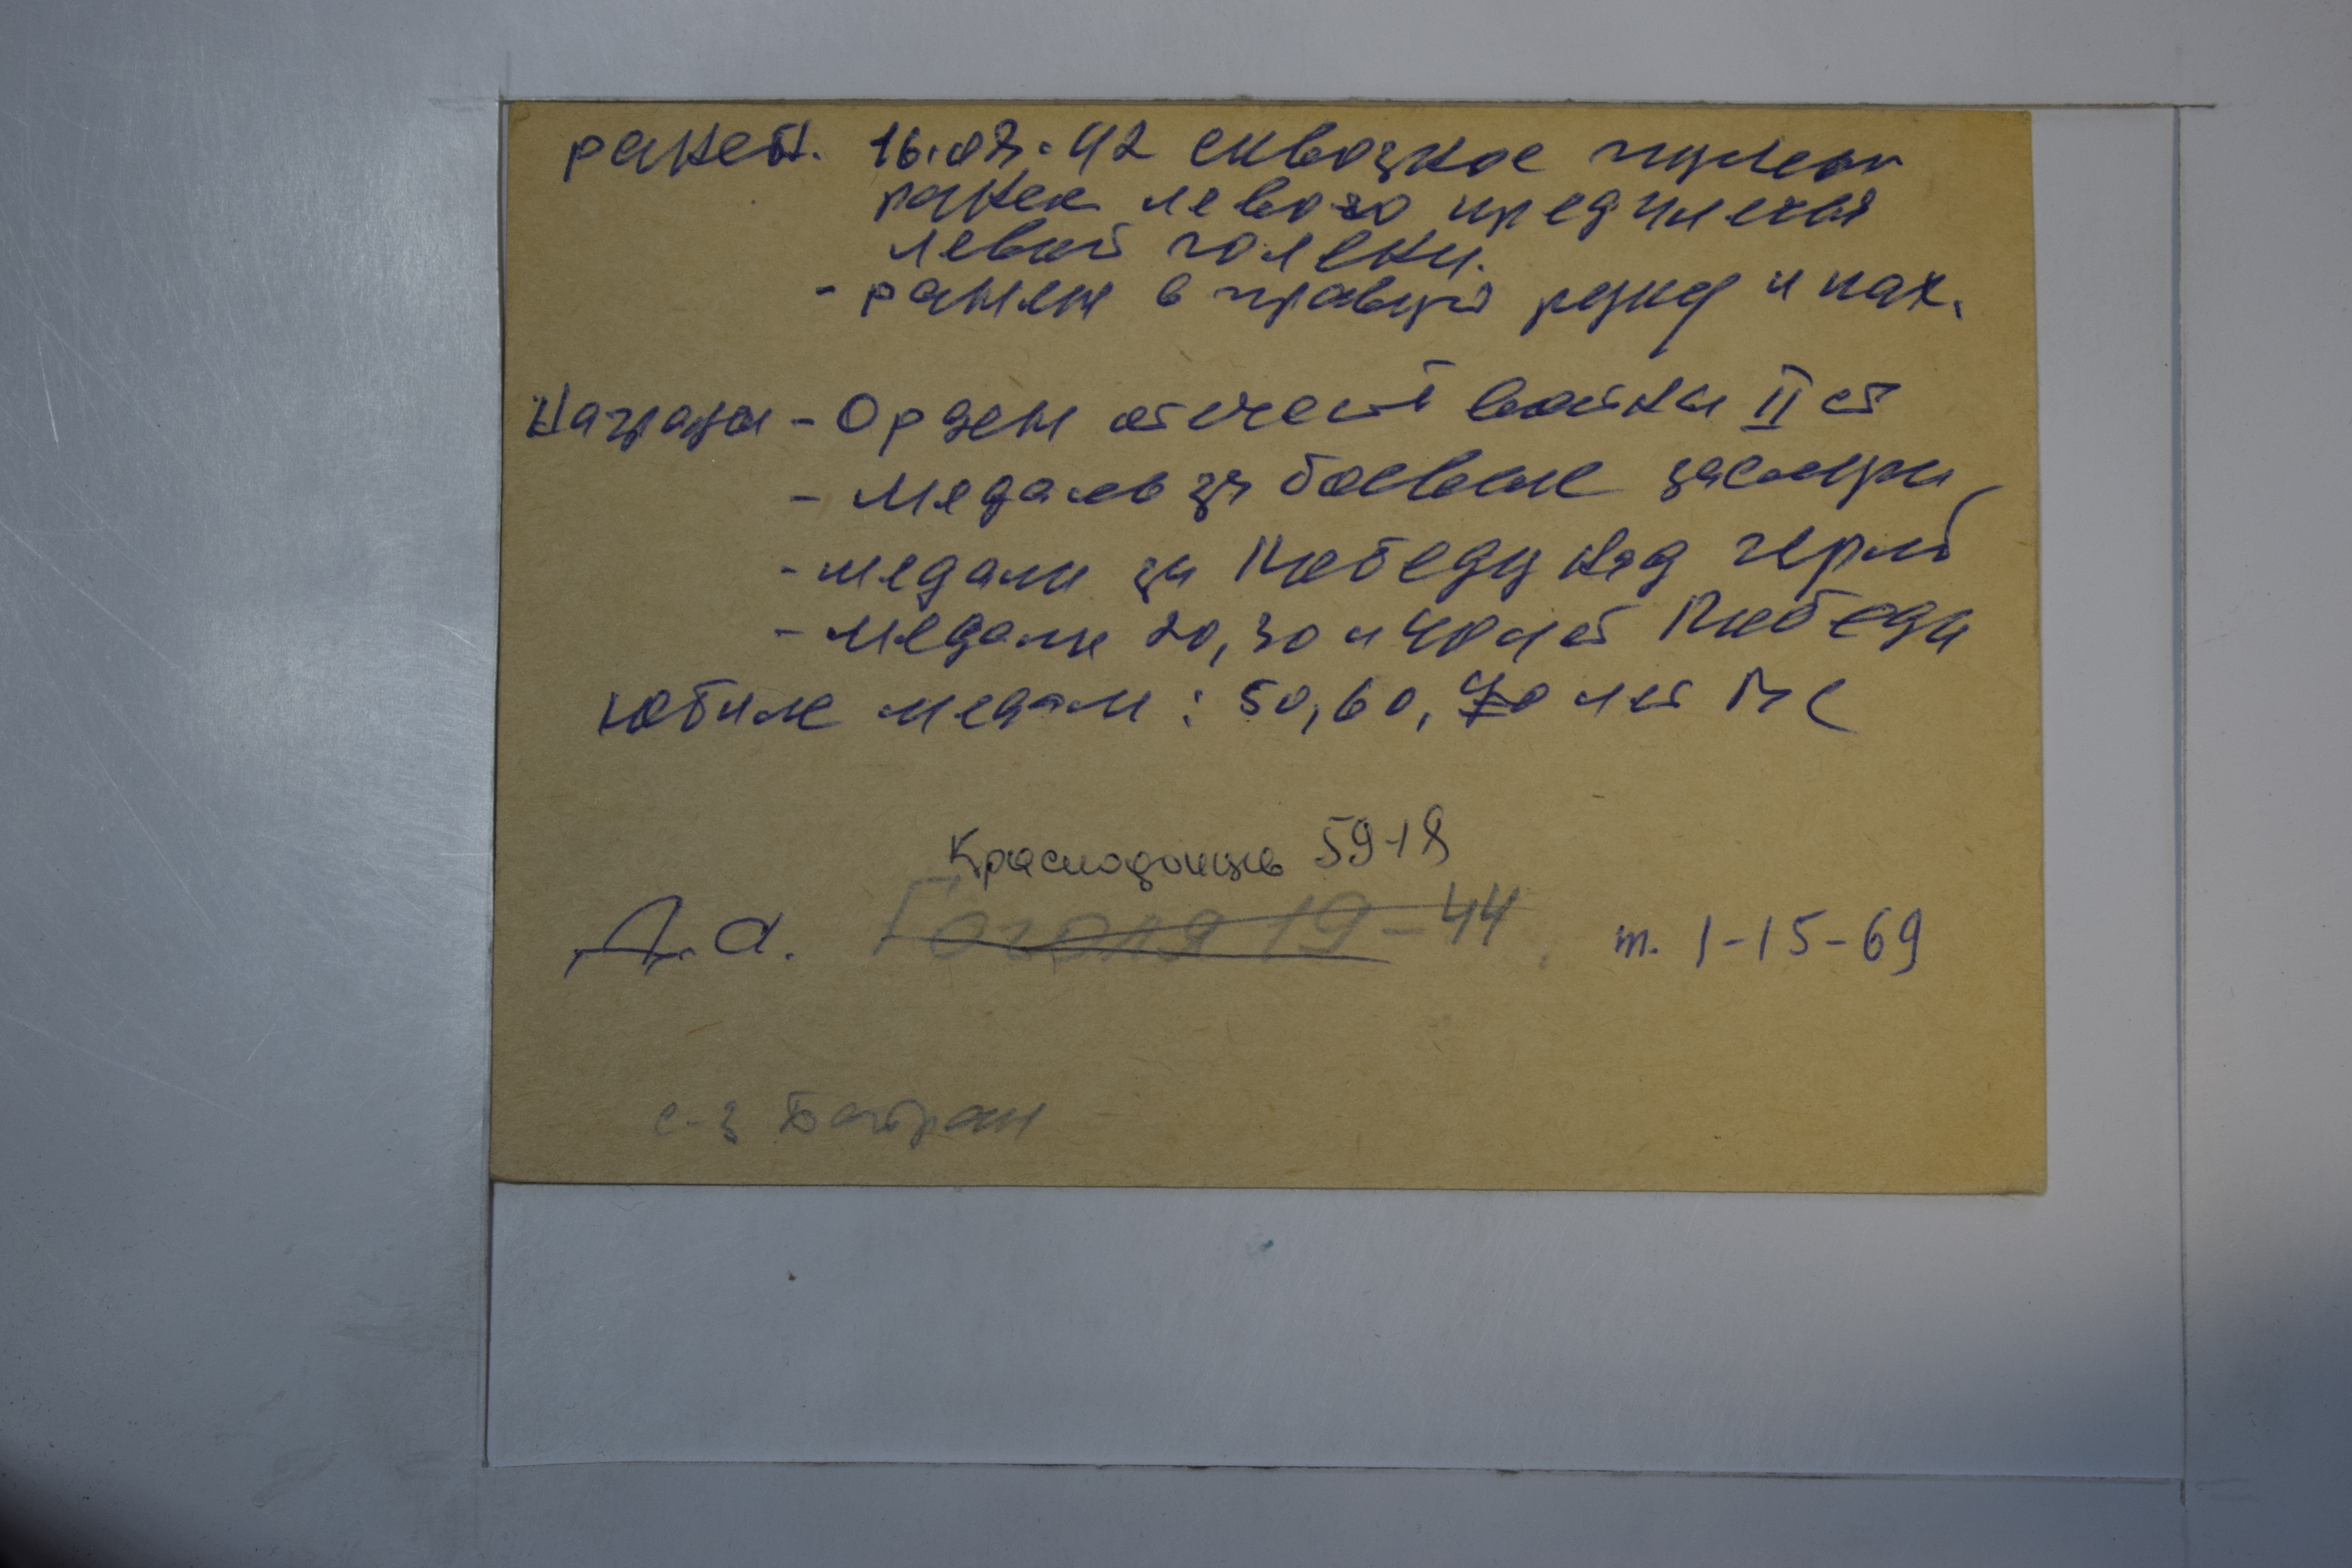 ранен. 16.08.42 сквозное пулев
ранен левого предплечья
левой голени.
- ранен в правую руку и пах.
Награды - Орден отечест войны II ст
- Медаль за боевые заслуги
- медаль за Победу над герм
- медали 20, 30 и 40 лет Победы
юбиле медали: 50, 60, 70 лет ВС
Краснодонцев 59-18
Д.а. Гоголя 19-44 т. 1-15-69
с-з